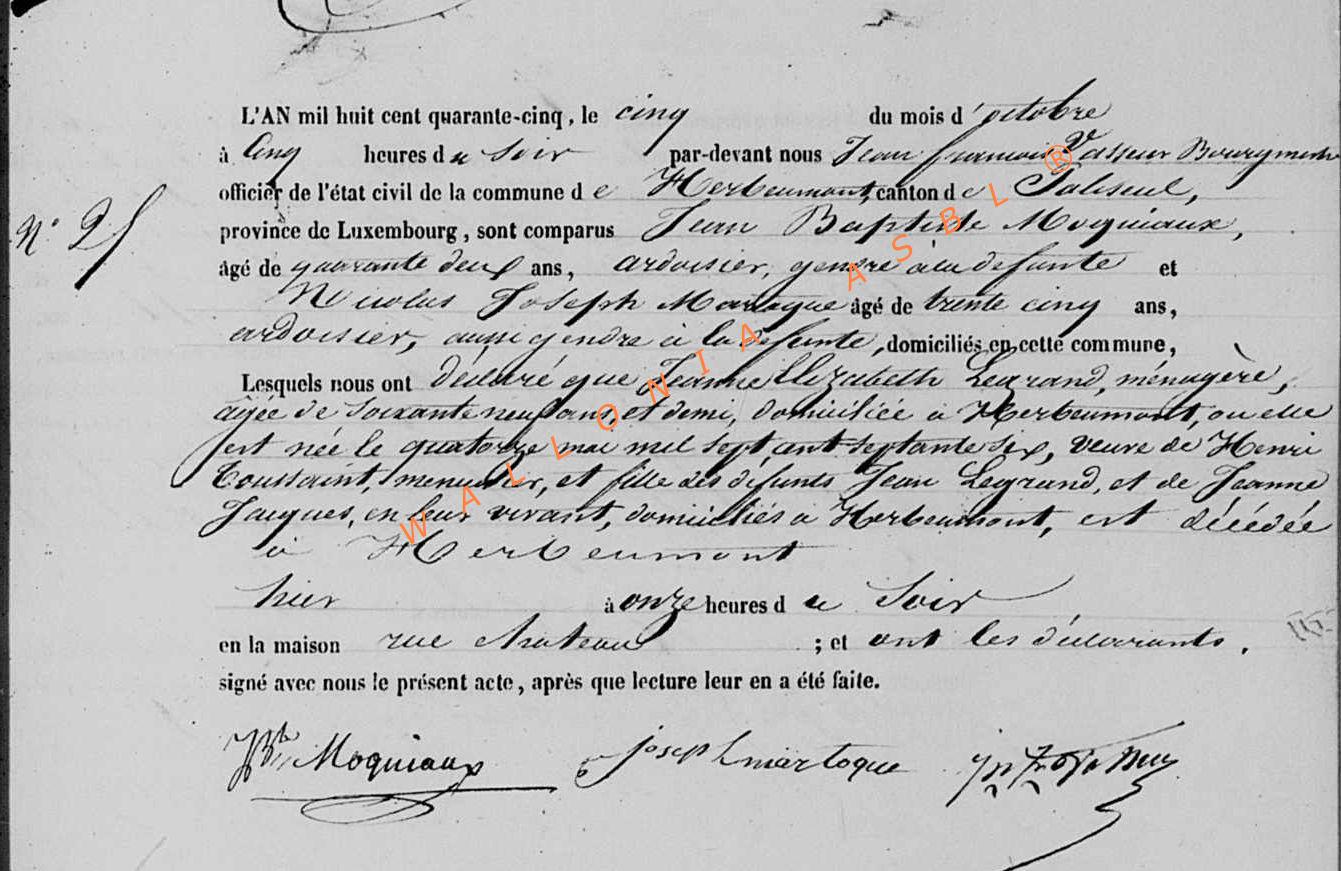 L'AN mil huit cent quarante-cinq, le cinq du mois d'octobre
à Cinq heures du Soir par-devant nous Jean françois Vasseur Bourgmestre
officier de l'état civil de la commune de Herbeumont, canton de Paliseul,
N° 25
province de Luxembourg, sont comparus Jean Baptiste Moquiaux,
âgé de quarante deux ans, ardoisier, gendre à la défunte et
Nicolas Joseph Martoque âgé de trente cinq ans,
ardoisier, aussi gendre à la défunte, domiciliés en cette commune,
Lesquels nous ont déclaré que Jeanne Elizabeth Legrand, ménagère,
agée de soixante neuf ans, et demi, domiciliée à Herbeumont, ou elle
est née le quatorze mai mil sept cent septante six, veuve de Henri
Toussaint, menuisier, et fille des défunts Jean Legrand, et de Jeanne
Jacques, en leur vivant, domiciliés à Herbeumont, est décédée
à Herbeumont
hier à onze heures du Soir
en la maison rue chateau ; et ont les déclarants,
signé avec nous le présent acte, après que lecture leur en a été faite.
JBte Moquiaux joseph martoque
WALLONIA ASBL ®